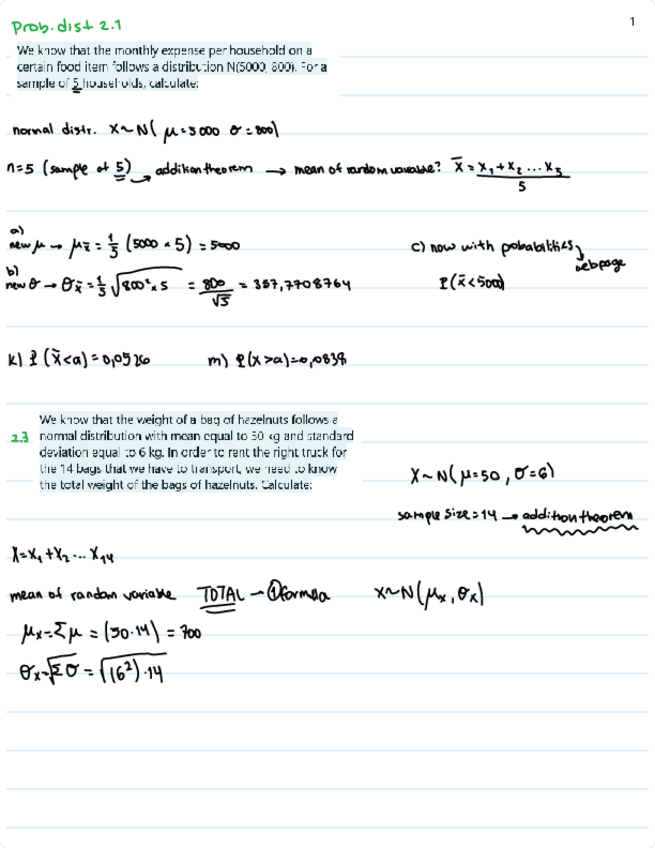 Prob. dist 2.1
1
We know that the monthly expense per household on a
certain food item follows a distribution N(5000, 800). For a
sample of 5 households, calculate:
normal distr. X~N( μ=5000 σ=800)
n=5 (sample of 5) → addition theorem → mean of random variable? X̄ = X₁+X₂...X₅ / 5
a)
new μ → μx̄ = 1/5 (5000 × 5) = 5000
b)
new σ → σx̄ = 1/5 √800²×5 = 800/√5 = 357,7708764
c) now with probabilities
webpage
P(x̄<5000)
k) P (x̄<a) = 0,0526
m) P(x>a)=0,0838
2.3
We know that the weight of a bag of hazelnuts follows a
normal distribution with mean equal to 50 kg and standard
deviation equal to 6 kg. In order to rent the right truck for
the 14 bags that we have to transport, we need to know
the total weight of the bags of hazelnuts. Calculate:
X~N(μ=50, σ=6)
sample size=14 → addition theorem
X=X₁+X₂...X₁₄
mean of random variable TOTAL → ① formula X~N(μx, σx)
μx=Σμ = (50·14) = 700
σx=√Σσ = √(16²)·14